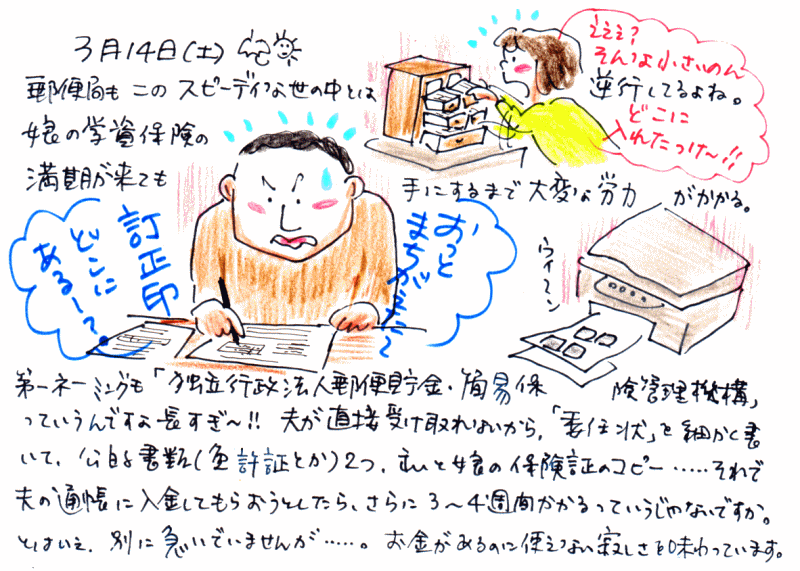 3月14日(土)
郵便局も このスピーディな世の中とは
逆行してるよね。
娘の学資保険の
満期が来ても
手にするまで 大変な労力 がかかる。
えええ?
そんな小さいのん
どこに
入れたっけ〜!!
おっと
まちがえた〜
訂正印
どこに
ある〜?
ウイーン
第一ネーミングも「独立行政法人郵便貯金・簡易保険管理機構」
っていうんですよ長すぎ〜!! 夫が直接受け取れないから、「委任状」を細かく書
いて、公的書類(免許証とか)2つ、私と娘の保険証のコピー……それで
夫の通帳に入金してもらおうとしたら、さらに3〜4週間かかるっていうじゃないですか。
とはいえ、別に急いでいませんが……。お金があるのに使えない寂しさを味わっています。